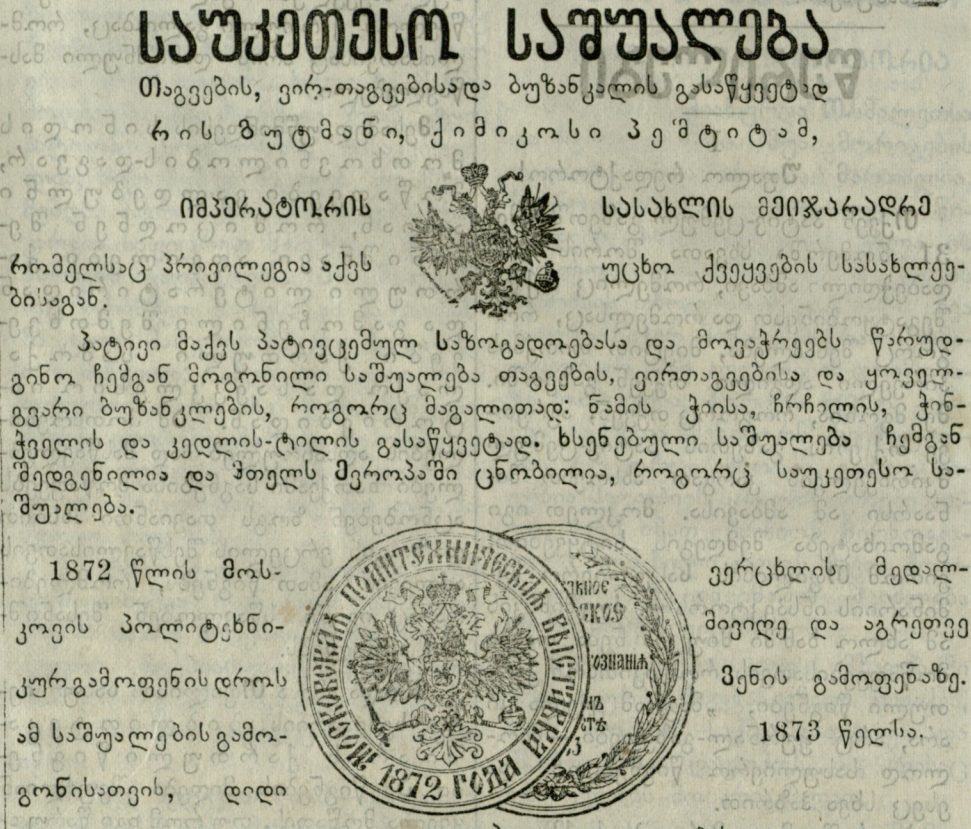 საუკეთესო საშუალება
თაგვების, ვირ-თაგვებისა და ბუზანკალის გასაწყვეტად
რის ზუტმანი, ქიმიკოსი პეშტიტამ,
იმპერატორის სასახლის მეიჯარადრე
რომელსაც პრივილეგია აქვს უცხო ქვეყვების სასახლეე-
ბისაგან.
პატივი მაქვს პატივცემულ საზოგადოებასა და მოვაჭრეებს წარუდ-
გინო ჩემგან მოგონილი საშუალება თაგვების, ვირთაგვებისა და ყოველ-
გვარი ბუზანკლების, როგორც მაგალითად: ნამის ჭიისა, ჩრჩილის, ჭინ-
ჭველის და კედლის-ტილის გასაწყვეტად. ხსენებული საშუალება ჩემგან
შედგენილია და მთელს ევროპაში ცნობილია, როგორც საუკეთესო სა-
შუალება.
1872 წლის მოს-
კოვის პოლიტეხნი-
კურ გამოფენის დროს
ამ საშუალების გამო-
გონისათვის, დიდი
МОСКОВСКАЯ ПОЛИТЕХНИЧЕСКАЯ ВЫСТАВКА
1872 ГОДА
ОЗНАНІЯ
ვერცხლის მედალ-
მივიღე და აგრეთვე
ვენის გამოფენაზე.
1873 წელსა.